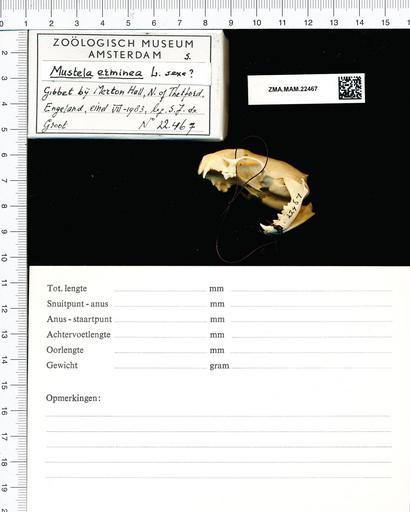 ZOÖLOGISCH MUSEUM
AMSTERDAM
S.
Mustela erminea L. sexe?
Gibbet bij Merton Hall, N. of Thetford.
Engeland, eind VII-1983, leg. S.J. de
Groot
N° 22.467
ZMA.MAM.22467
22.467
Tot. lengte mm
Snuitpunt - anus mm
Anus - staartpunt mm
Achtervoetlengte mm
Oorlengte mm
Gewicht gram
Opmerkingen: